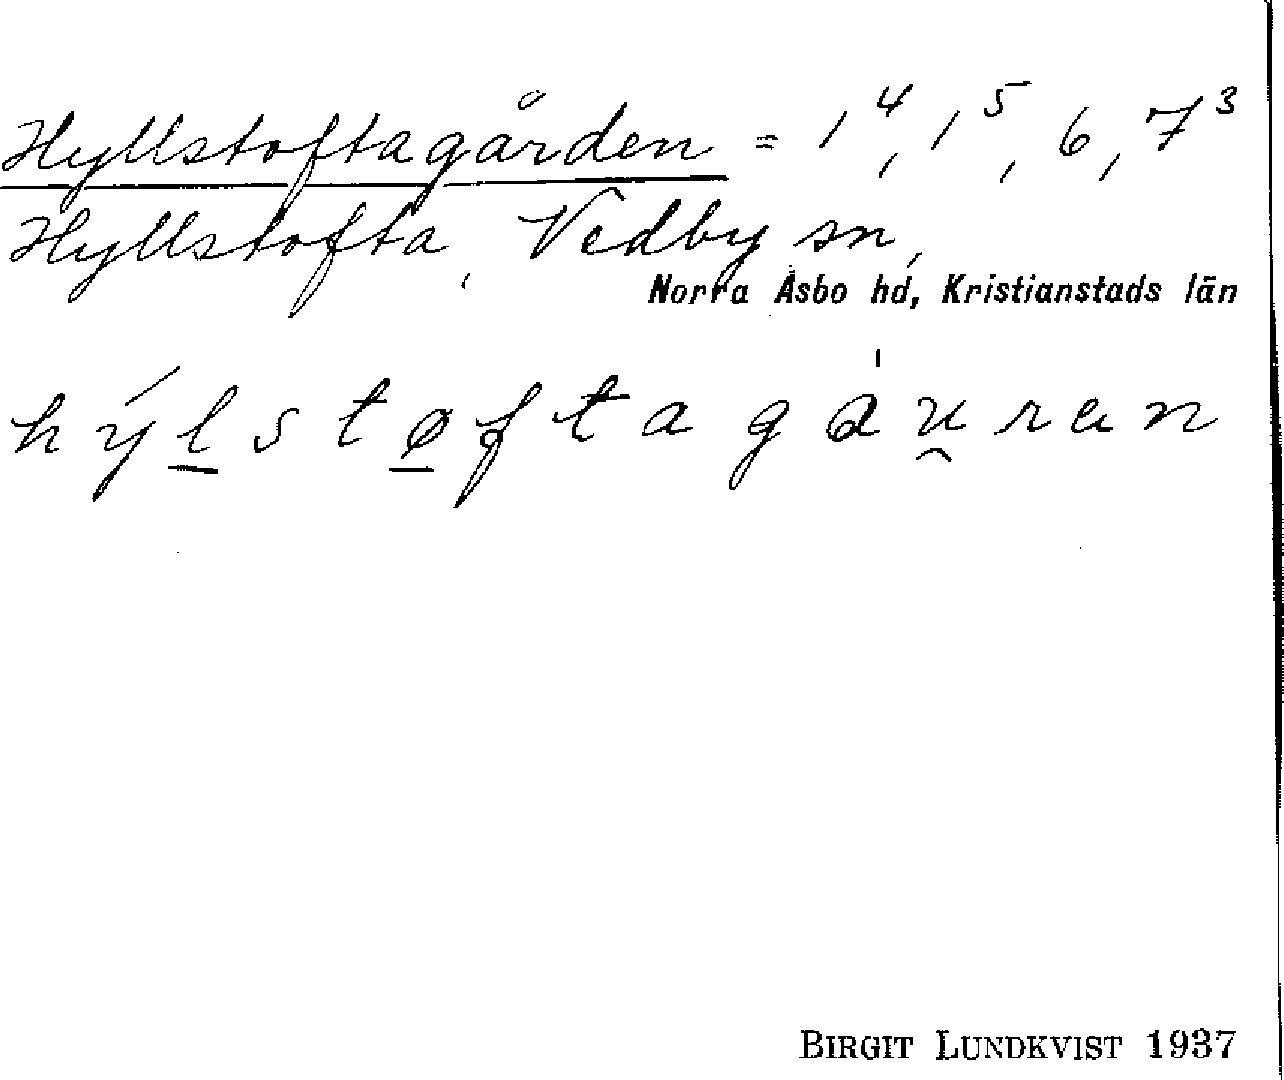 Hyllstoftagården = 1⁴, 1⁵, 6, 7³
Hyllstofta, Vedby sn,
Norra Åsbo hd, Kristianstads län
hýlstøftagáu̯ran
BIRGIT LUNDKVIST 1937